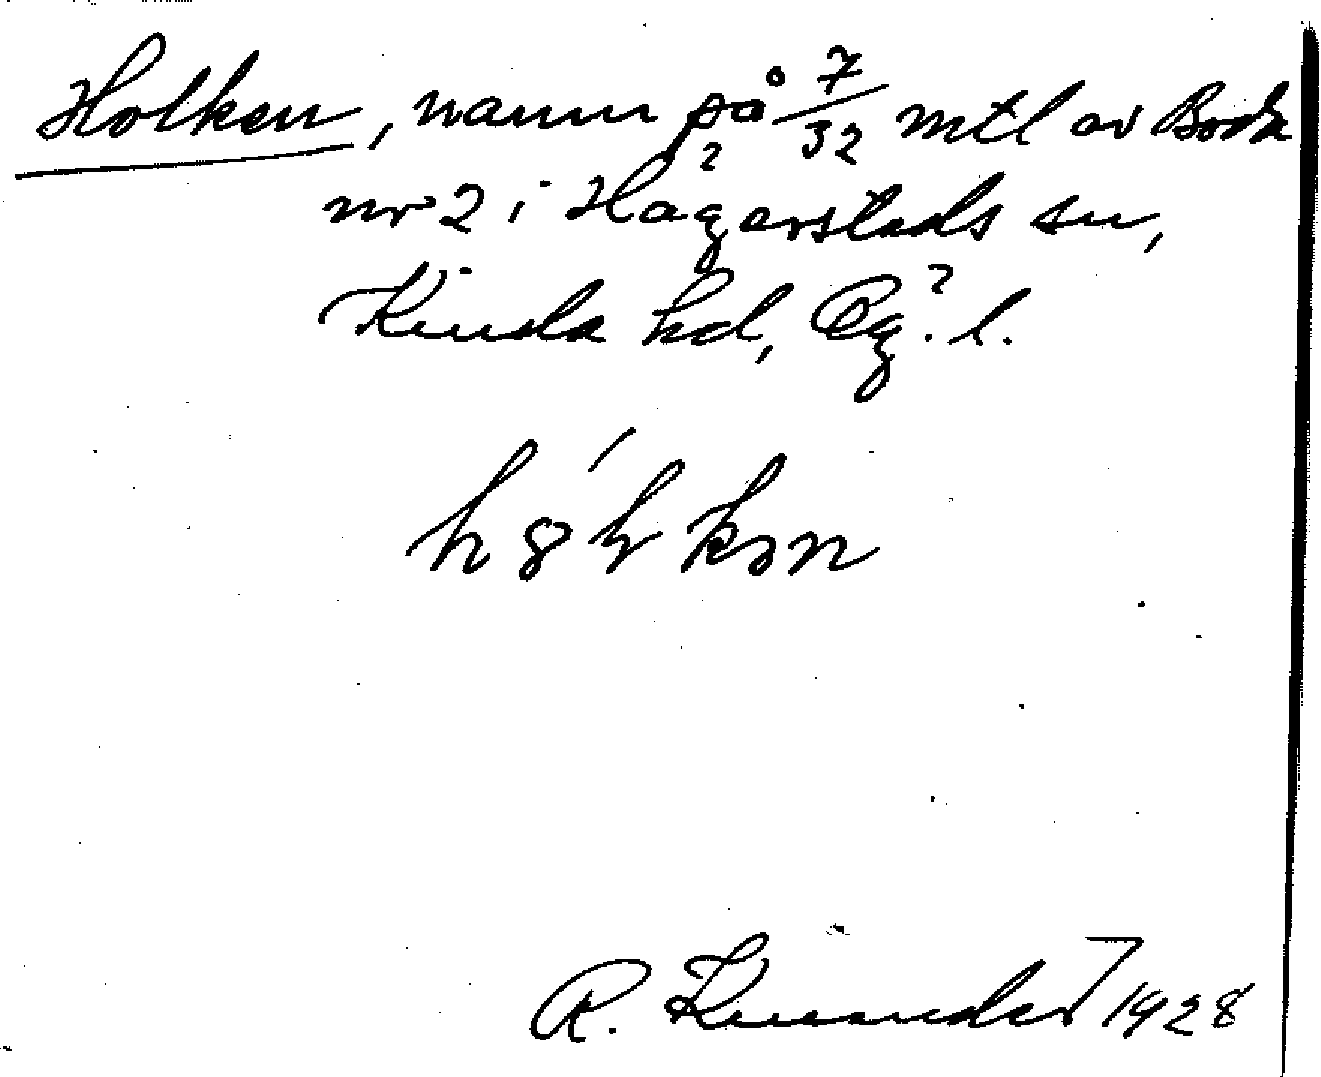 Holken, namn på 7/32 mtl av Boda
nr 2 i Hägerstads sn,
Kinda hd, Ög. l.
R. Kinander 1928